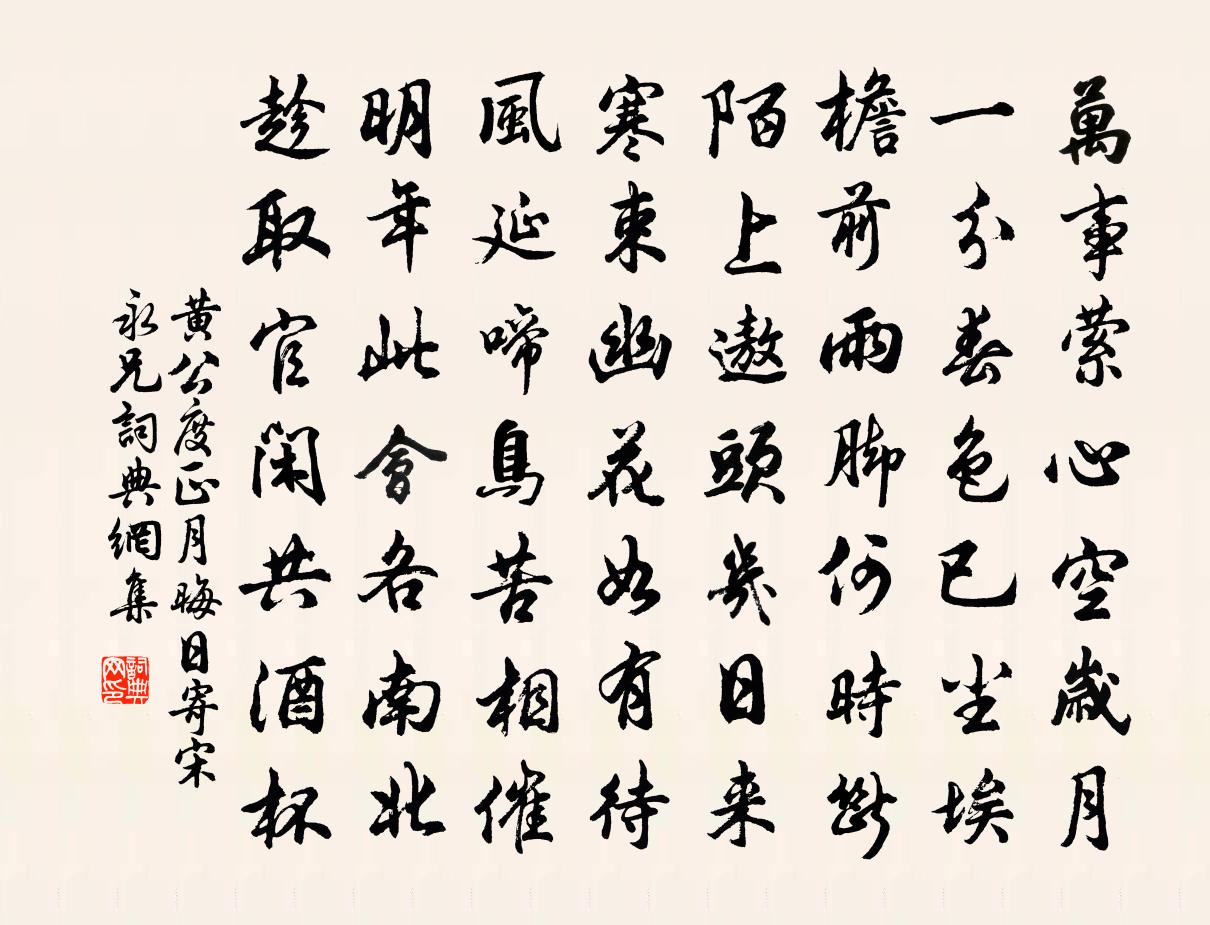 萬事縈心空歲月
一分春色已尘埃
檐前雨脚何時斷
陌上遨頭幾日来
寒束幽花如有待
風延啼鳥苦相催
明年此會各南北
趁取官閑共酒杯
黄公度正月晦日寄宋
永兄詞典網集
詞典网印